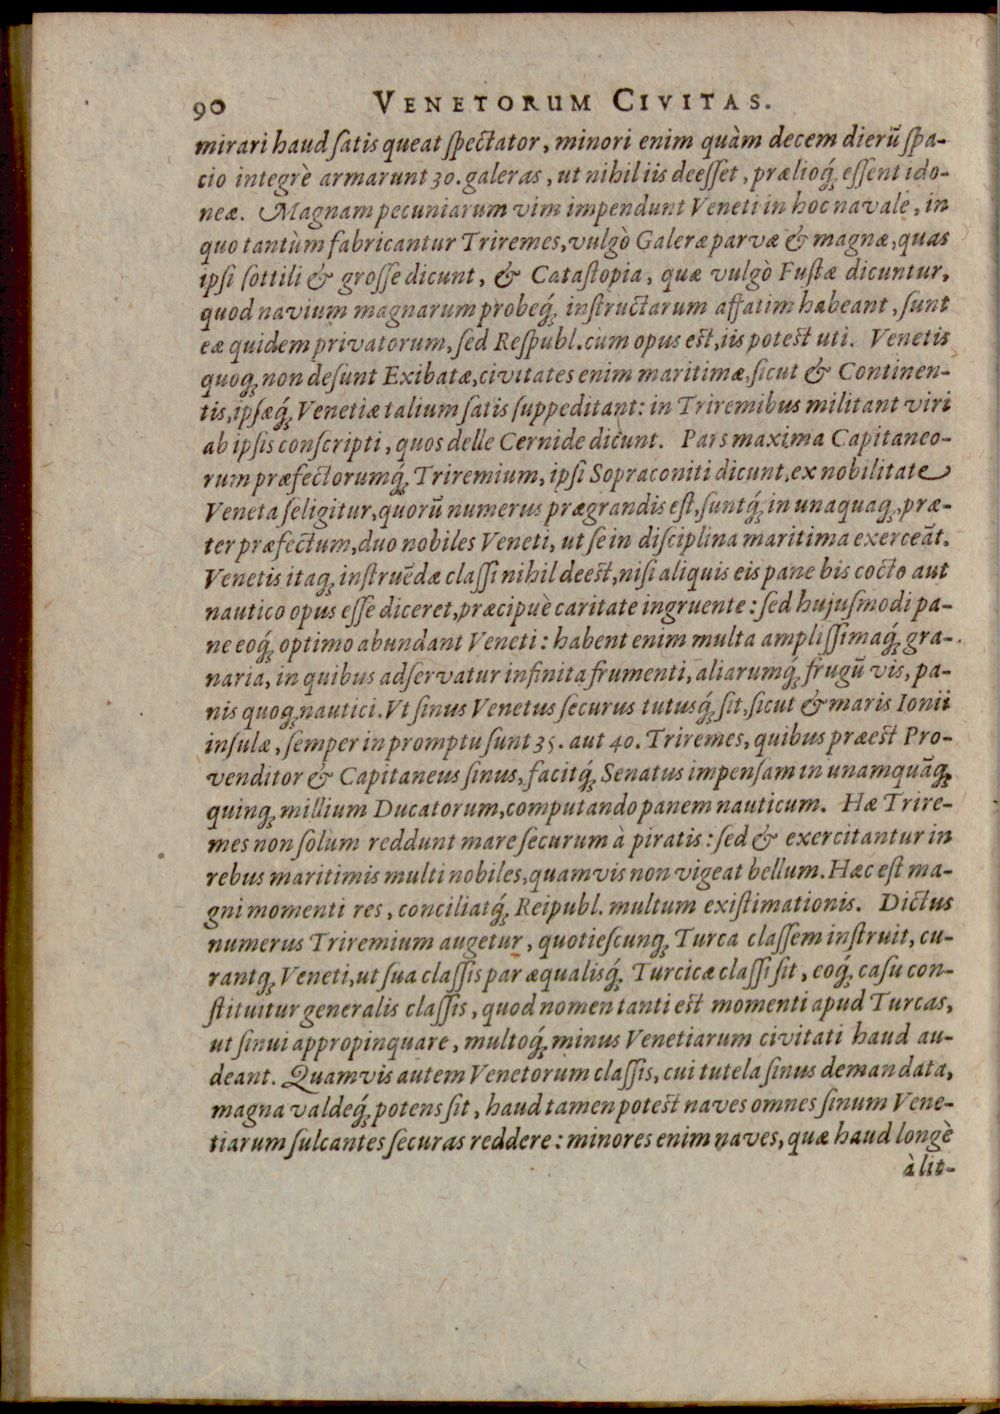 90 VENETORUM CIVITAS.
mirari haud ſatis queat ſpectator, minori enim quàm decem dierũ ſpa-
cio integrè armarunt 30. galeras, ut nihil iis deeſſet, prælioq́; eſſent ido-
neæ. Magnam pecuniarum vim impendunt Veneti in hoc navale, in
quo tantùm fabricantur Triremes, vulgò Galeræ parvæ & magnæ, quas
ipſi ſottili & groſſe dicunt, & Cataſtopia, quæ vulgò Fuſtæ dicuntur,
quod navium magnarum probeq́; inſtructarum affatim habeant, ſunt
eæ quidem privatorum, ſed Reſpubl. cùm opus eſt, iis poteſt uti. Venetis
quoq; non deſunt Exibatæ, civitates enim maritimæ, ſicut & Continen-
tis, ipſæq́; Venetiæ talium ſatis ſuppeditant: in Triremibus militant viri
ab ipſis conſcripti, quos delle Cernide dicunt. Pars maxima Capitaneo-
rum præfectorumq́; Triremium, ipſi Sopraconiti dicunt, ex nobilitate
Veneta ſeligitur, quorũ numerus prægrandis eſt, ſuntq́; in unaquaq;, præ-
ter præfectum, duo nobiles Veneti, ut ſe in diſciplina maritima exerceãt.
Venetis itaq; inſtruẽdæ claſſi nihil deeſt, niſi aliquis eis pane bis cocto aut
nautico opus eſſe diceret, præcipuè caritate ingruente: ſed hujuſmodi pa-
ne eoq́; optimo abundant Veneti: habent enim multa ampliſſimaq́; gra-
naria, in quibus adſervatur infinita frumenti, aliarumq́; frugũ vis, pa-
nis quoq; nautici. Vt ſinus Venetus ſecurus tutusq́; ſit, ſicut & maris Ionii
inſulæ, ſemper in promptu ſunt 35. aut 40. Triremes, quibus præeſt Pro-
venditor & Capitaneus ſinus, facitq́; Senatus impenſam in unamquãq;
quinq; millium Ducatorum, computando panem nauticum. Hæ Trire-
mes non ſolùm reddunt mare ſecurum à piratis: ſed & exercitantur in
rebus maritimis multi nobiles, quamvis non vigeat bellum. Hæc eſt ma-
gni momenti res, conciliatq́; Reipubl. multum exiſtimationis. Dictus
numerus Triremium augetur, quotieſcunq; Turca claſſem inſtruit, cu-
rantq; Veneti, ut ſua claſſis par æqualisq́; Turcicæ claſſi ſit, eoq́; caſu con-
ſtituitur generalis claſſis, quod nomen tanti eſt momenti apud Turcas,
ut ſinui appropinquare, multoq́; minus Venetiarum civitati haud au-
deant. Quamvis autem Venetorum claſſis, cui tutela ſinus demandata,
magna valdeq́; potens ſit, haud tamen poteſt naves omnes ſinum Vene-
tiarum ſulcantes ſecuras reddere: minores enim naves, quæ haud longè
à lit-